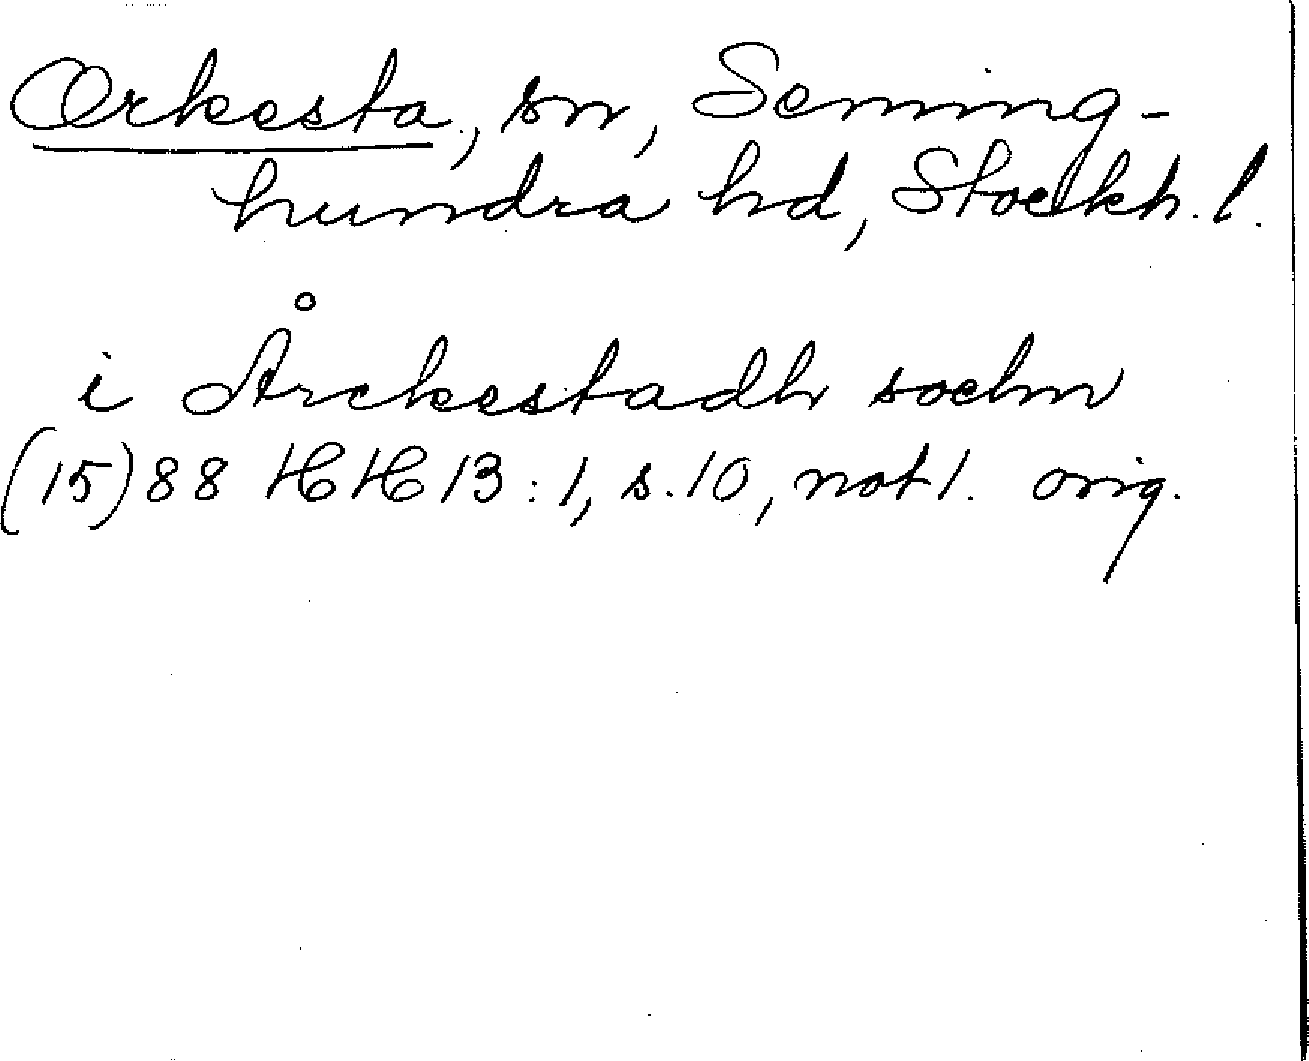 Orkesta, sn, Seming-
hundra hd, Stockh. l.
i Årckestadh sochn
(15)88 HH 13:1, s. 10, not 1. orig.